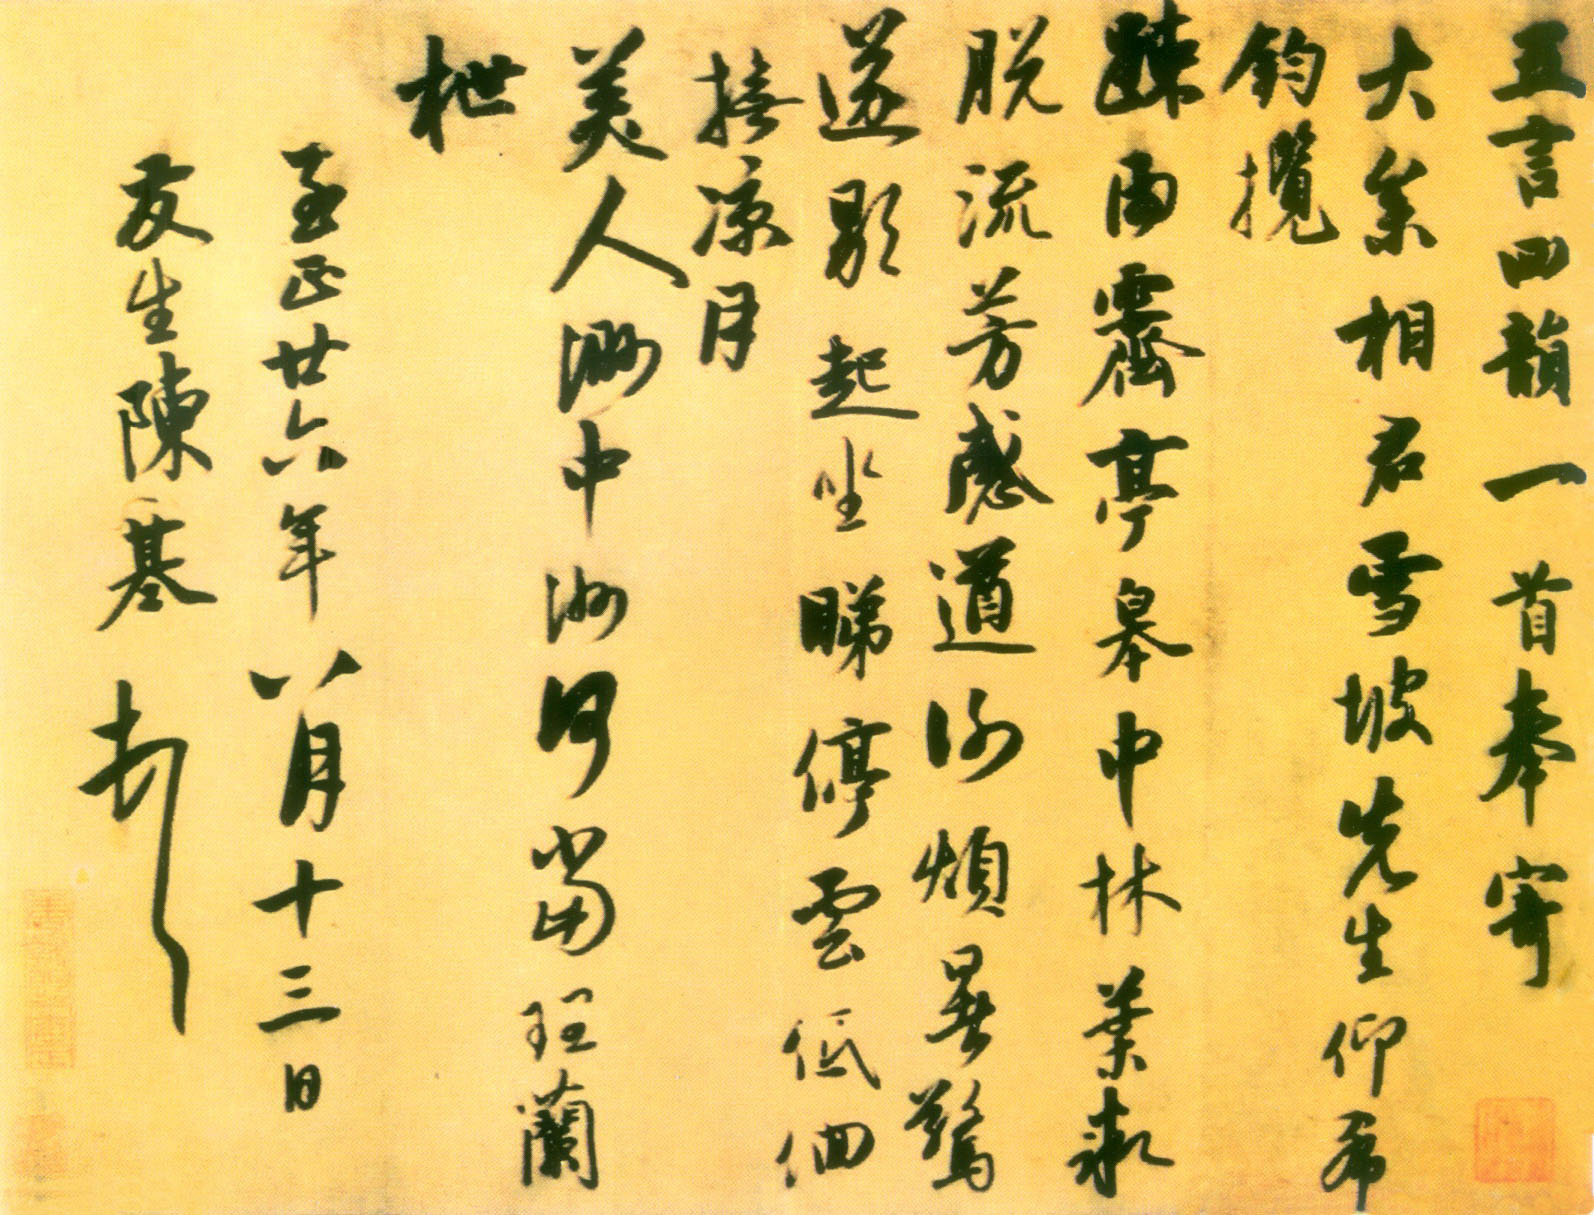 五言四韻一首奉寄
大參相君雪坡先生仰希
鈞攬
疎雨霽亭皋中林葉求
脫流芳感道阻煩暑驚
遂歇起坐睇停雲低佪
捲凉月
美人渺中洲何當理蘭
枻
至正廿六年八月十三日
友生陳基